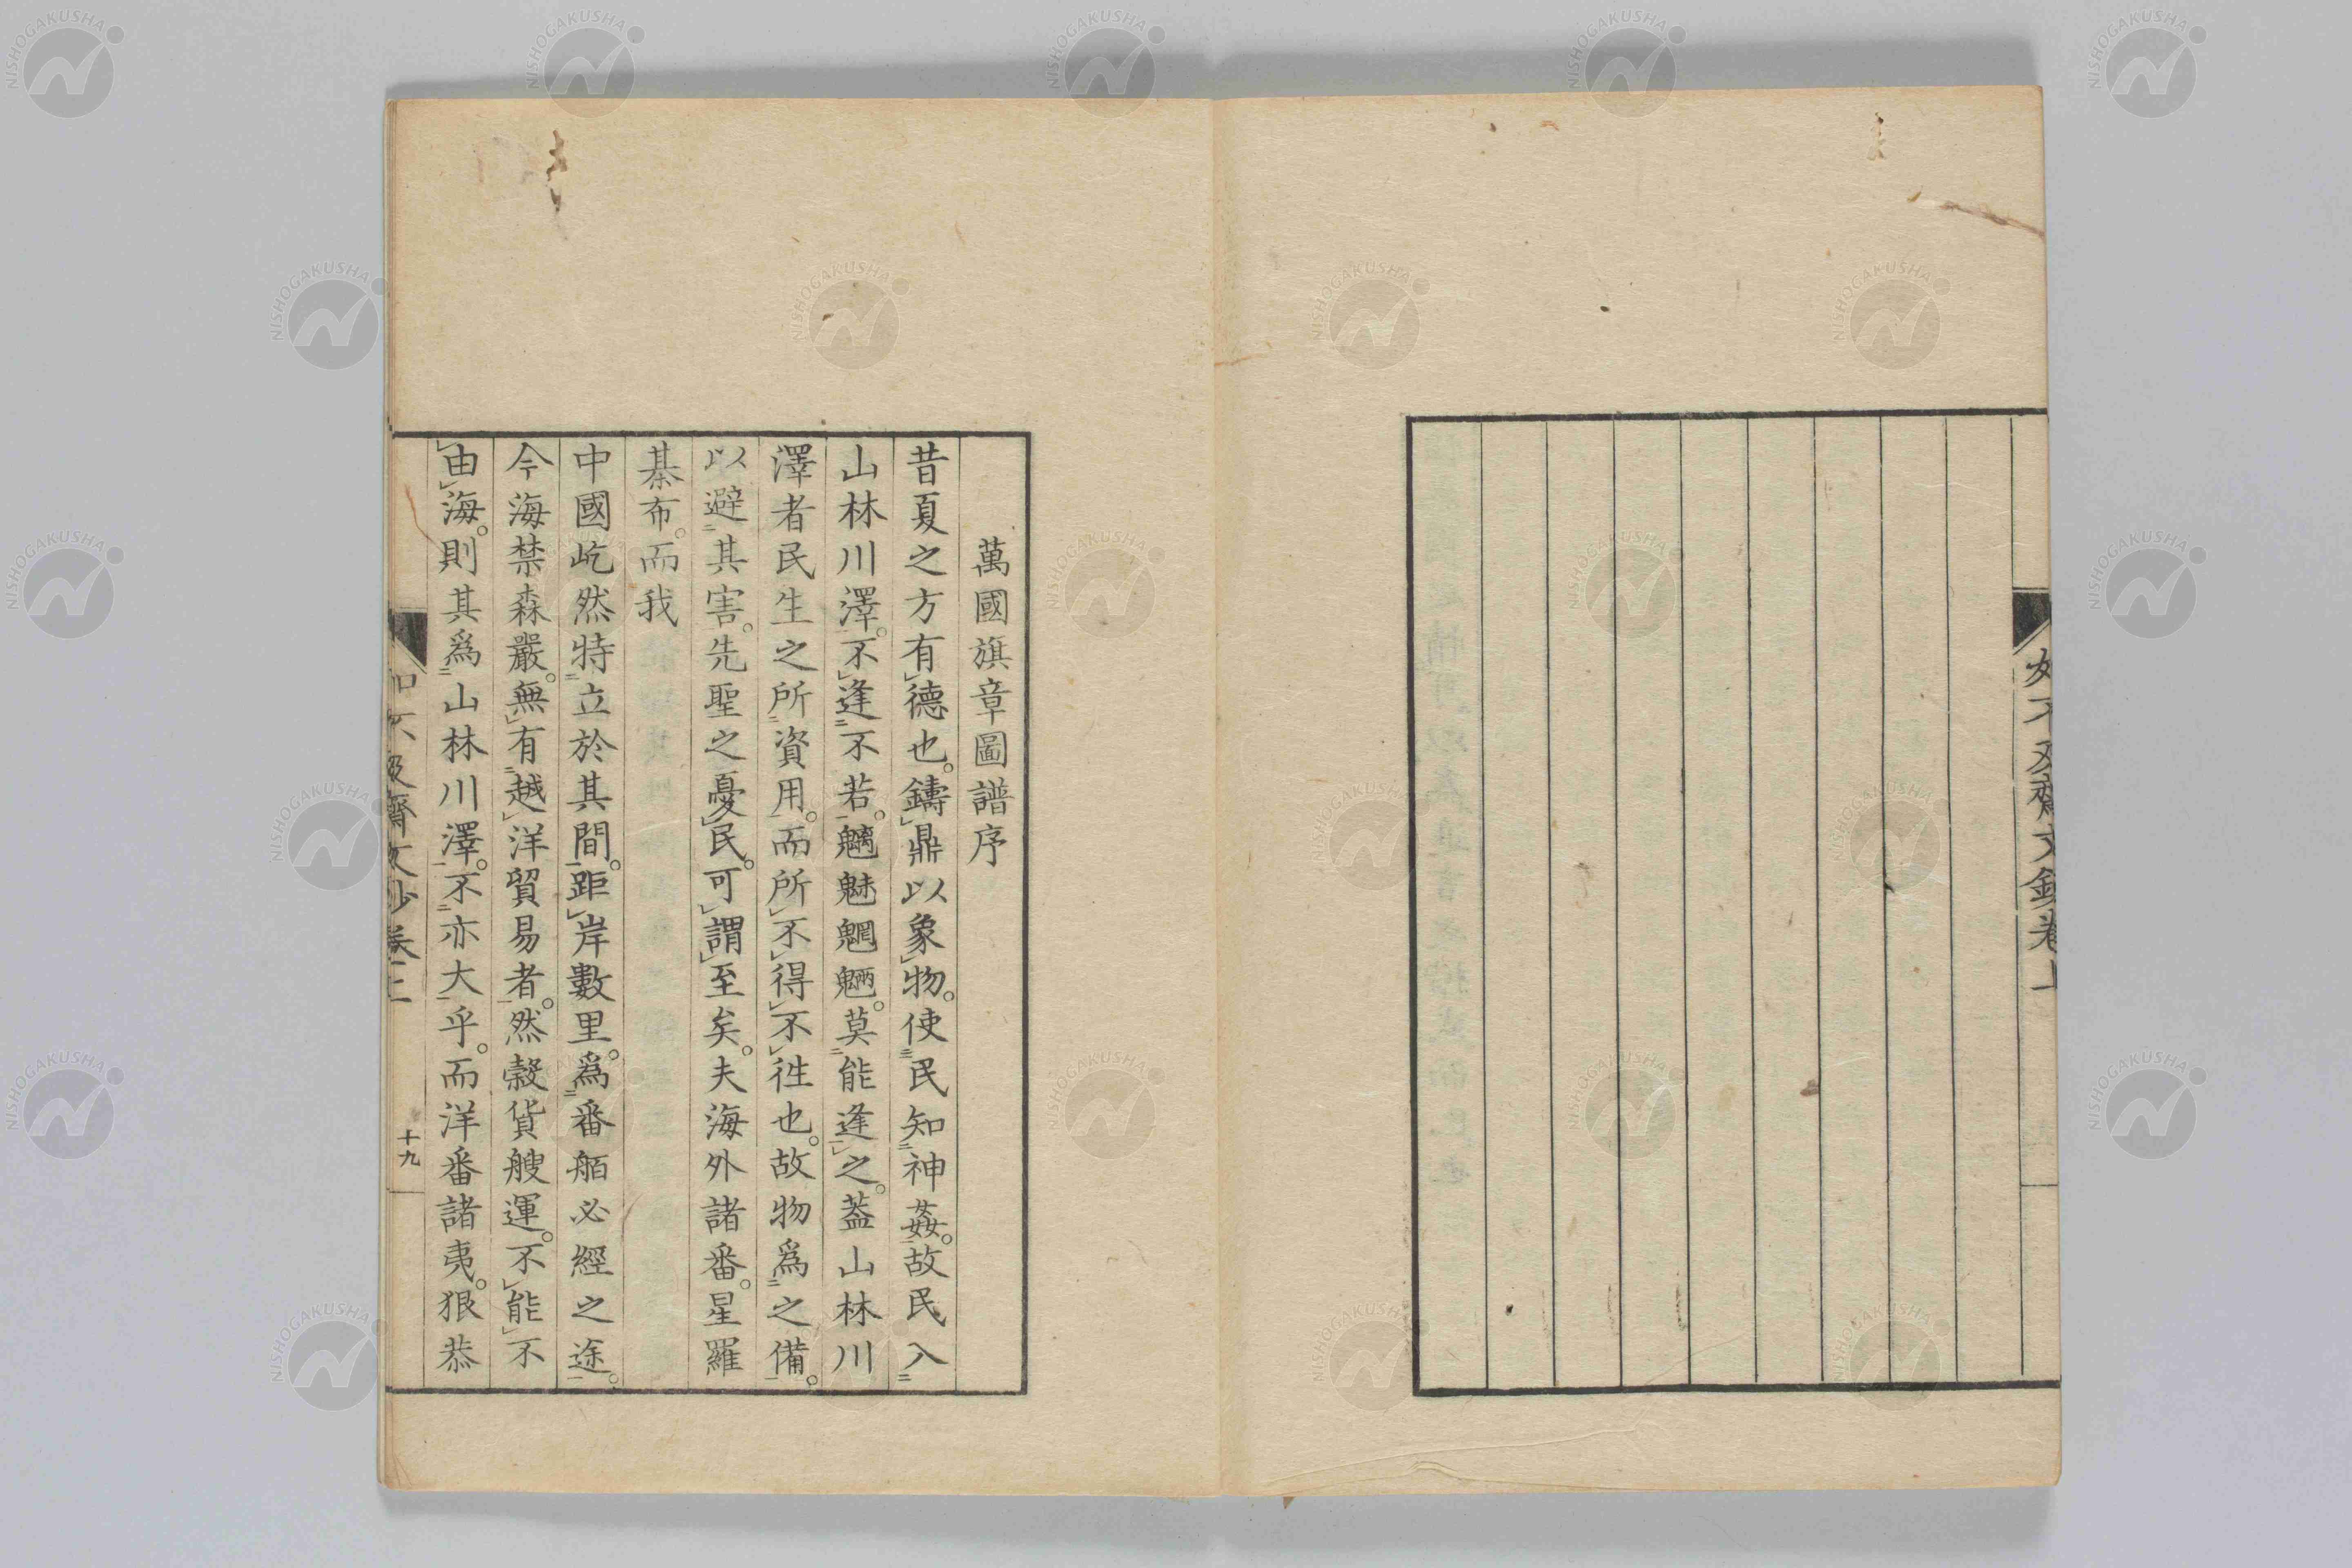 如不及齋文鈔卷上
萬國旗章圖譜序
昔夏之方有德也。鑄鼎以象物。使民知神姦。故民入
山林川澤。不逢不若。魑魅魍魎。莫能逢之。蓋山林川
澤者民生之所資用。而所不得不往也。故物爲之備。
以避其害。先聖之憂民。可謂至矣。夫海外諸番。星羅
棊布。而我
中國屹然特立於其間。距岸數里。爲番舶必經之途。
今海禁森嚴。無有越洋貿易者。然穀貨艘運。不能不
由海。則其爲山林川澤。不亦大乎。而洋番諸夷。狠恭
如不及齋文鈔卷上
十九
NISHOGAKUSHA